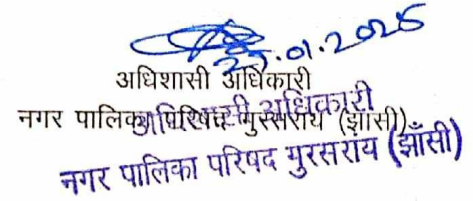 27.01.2025
अधिशासी अधिकारी
नगर पालिका परिषद गुरसरांय (झांसी)
अधिशासी अधिकारी
नगर पालिका परिषद गुरसरांय (झाँसी)